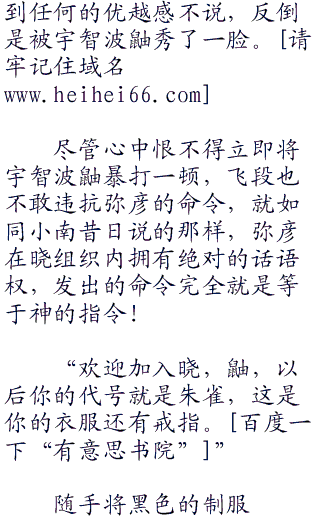 到任何的优越感不说，反倒
是被宇智波鼬秀了一脸。[请
牢记住域名
www.heihei66.com]
尽管心中恨不得立即将
宇智波鼬暴打一顿，飞段也
不敢违抗弥彦的命令，就如
同小南昔日说的那样，弥彦
在晓组织内拥有绝对的话语
权，发出的命令完全就是等
于神的指令！
“欢迎加入晓，鼬，以
后你的代号就是朱雀，这是
你的衣服还有戒指。[百度一
下“有意思书院”]”
随手将黑色的制服